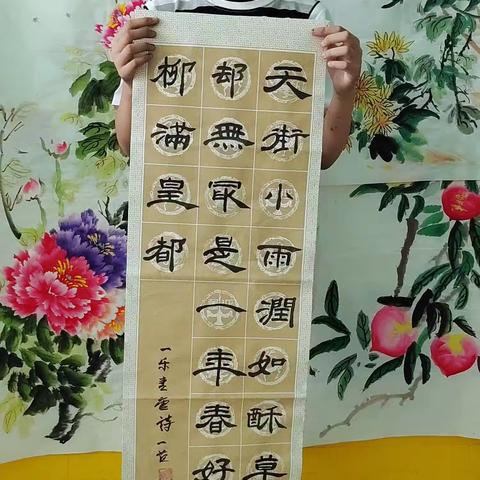 天街小雨潤如酥草
却無冣是一年春好
柳滿皇都
一乐书唐诗一首